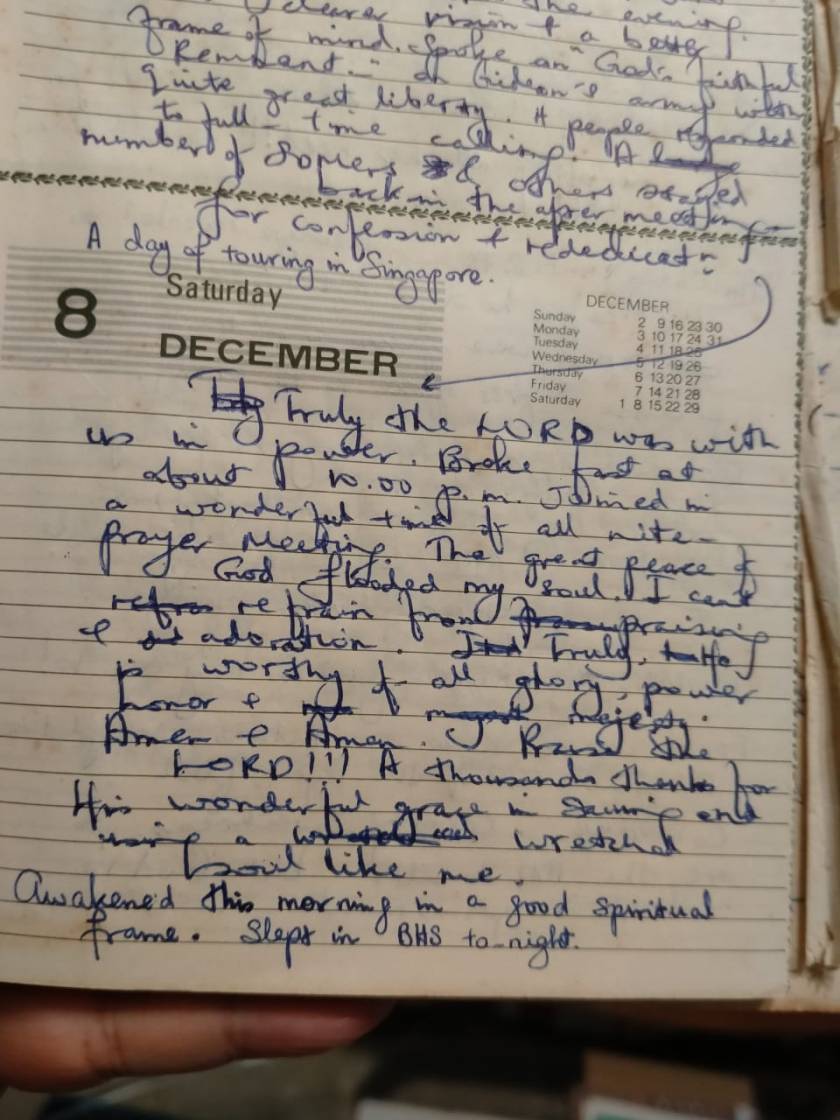 clearer vision & a better the evening.
frame of mind. Spoke on "God's faithful
Remnant" - on Gideon's army with
quite great liberty. 4 people responded
to full-time calling. A
number of & others stayed
back in the after meeting
for confession & rededicatn
A day of touring in Singapore.
8
Saturday
DECEMBER
DECEMBER
Sunday 2 9 16 23 30
Monday 3 10 17 24 31
Tuesday 4 11 18 25
Wednesday 5 12 19 26
Thursday 6 13 20 27
Friday 7 14 21 28
Saturday 1 8 15 22 29
Truly the LORD was with
us in power. Broke fast at
about 10.00 p.m. Joined in
a wonderful time of all nite-
prayer Meeting. The great peace of
God flooded my soul. I can't
refrain from praising
& adoration. Truly, He
is worthy of all glory, power
honor & majesty.
Amen & Amen. Praise the
LORD!!! A thousands thanks for
His wonderful grace in saving and
using a wretched
soul like me.
Awakened this morning in a good spiritual
frame. Slept in BHS to-night.